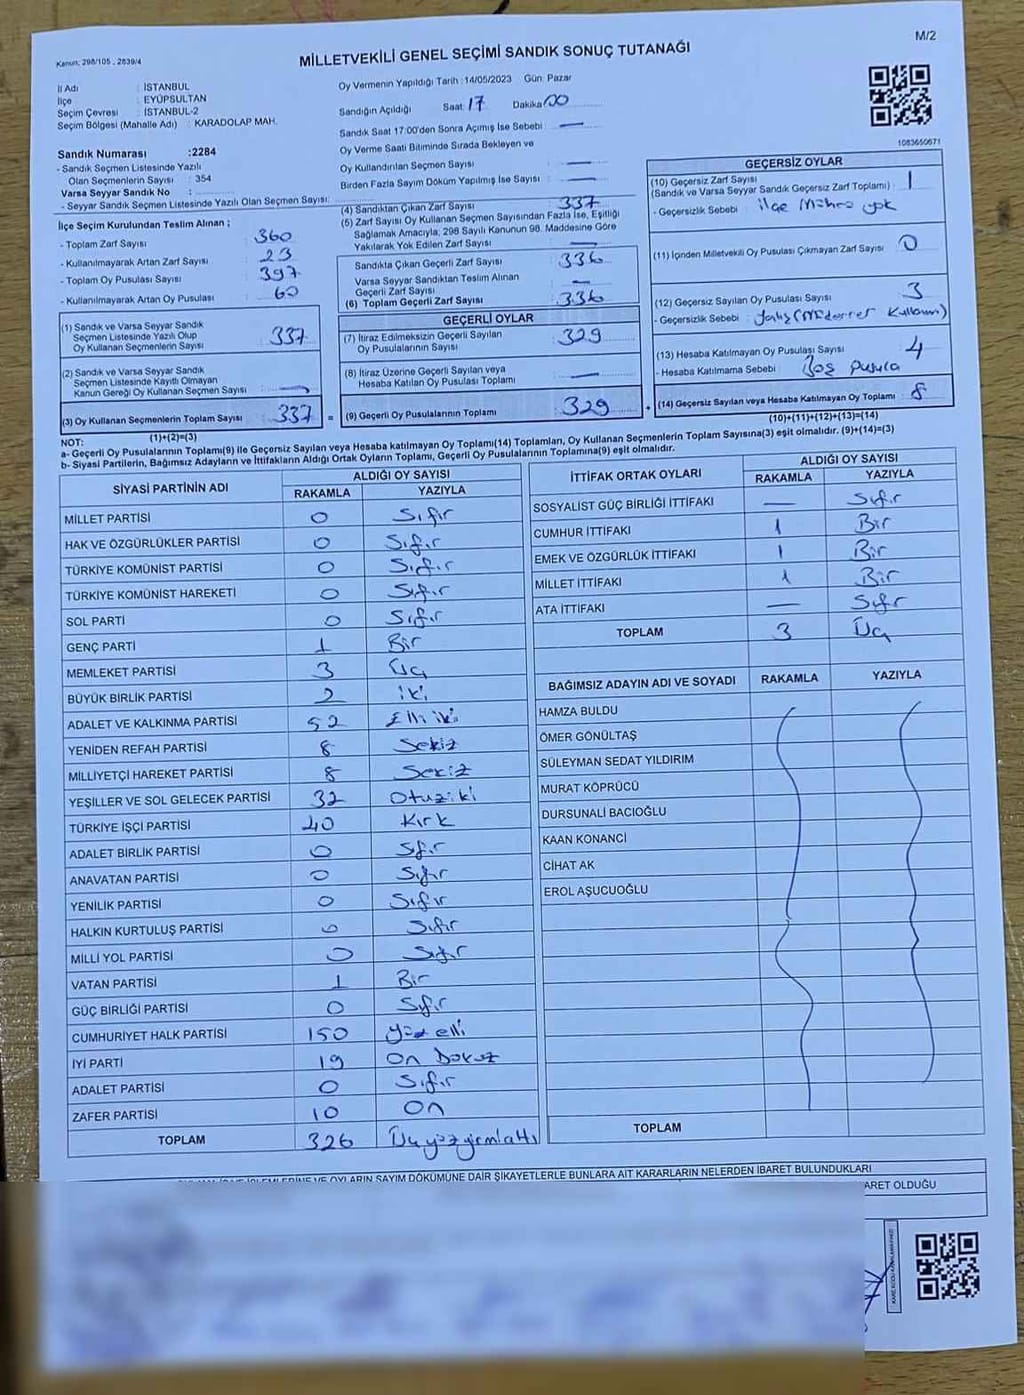 M/2
Kanun: 298/105 , 2839/4
MİLLETVEKİLİ GENEL SEÇİMİ SANDIK SONUÇ TUTANAĞI
İl Adı : İSTANBUL
İlçe : EYÜPSULTAN
Seçim Çevresi : İSTANBUL-2
Seçim Bölgesi (Mahalle Adı) : KARADOLAP MAH.
Sandık Numarası :2284
- Sandık Seçmen Listesinde Yazılı
Olan Seçmenlerin Sayısı : 354
Varsa Seyyar Sandık No :
- Seyyar Sandık Seçmen Listesinde Yazılı Olan Seçmen Sayısı:
Oy Vermenin Yapıldığı Tarih :14/05/2023 Gün: Pazar
Sandığın Açıldığı Saat 17 Dakika 00
Sandık Saat 17:00'den Sonra Açımış İse Sebebi : —
Oy Verme Saati Bitiminde Sırada Bekleyen ve
Oy Kullandırılan Seçmen Sayısı : —
Birden Fazla Sayım Döküm Yapılmış İse Sayısı : —
1083650671
İlçe Seçim Kurulundan Teslim Alınan ;
- Toplam Zarf Sayısı : 360
- Kullanılmayarak Artan Zarf Sayısı : 23
- Toplam Oy Pusulası Sayısı : 397
- Kullanılmayarak Artan Oy Pusulası : 60
(1) Sandık ve Varsa Seyyar Sandık
Seçmen Listesinde Yazılı Olup
Oy Kullanan Seçmenlerin Sayısı : 337
(2) Sandık ve Varsa Seyyar Sandık
Seçmen Listesinde Kayıtlı Olmayan
Kanun Gereği Oy Kullanan Seçmen Sayısı : —
(3) Oy Kullanan Seçmenlerin Toplam Sayısı : 337 =
(1)+(2)=(3)
(4) Sandıktan Çıkan Zarf Sayısı : 337
(5) Zarf Sayısı Oy Kullanan Seçmen Sayısından Fazla İse, Eşitliği
Sağlamak Amacıyla; 298 Sayılı Kanunun 98. Maddesine Göre
Yakılarak Yok Edilen Zarf Sayısı : —
Sandıkta Çıkan Geçerli Zarf Sayısı : 336
Varsa Seyyar Sandıktan Teslim Alınan
Geçerli Zarf Sayısı : —
(6) Toplam Geçerli Zarf Sayısı : 336
GEÇERLİ OYLAR
(7) İtiraz Edilmeksizin Geçerli Sayılan
Oy Pusulalarının Sayısı : 329
(8) İtiraz Üzerine Geçerli Sayılan veya
Hesaba Katılan Oy Pusulası Toplamı : —
(9) Geçerli Oy Pusulalarının Toplamı : 329 +
GEÇERSİZ OYLAR
(10) Geçersiz Zarf Sayısı
(Sandık ve Varsa Seyyar Sandık Geçersiz Zarf Toplamı) : 1
- Geçersizlik Sebebi : ilçe Mührü yok
(11) İçinden Milletvekili Oy Pusulası Çıkmayan Zarf Sayısı : 0
(12) Geçersiz Sayılan Oy Pusulası Sayısı : 3
- Geçersizlik Sebebi :
(13) Hesaba Katılmayan Oy Pusulası Sayısı : 4
- Hesaba Katılmama Sebebi : Boş pusula
(14) Geçersiz Sayılan veya Hesaba Katılmayan Oy Toplamı : 8
(10)+(11)+(12)+(13)=(14)
NOT:
a- Geçerli Oy Pusulalarının Toplamı(9) ile Geçersiz Sayılan veya Hesaba katılmayan Oy Toplamı(14) Toplamları, Oy Kullanan Seçmenlerin Toplam Sayısına(3) eşit olmalıdır. (9)+(14)=(3)
b- Siyasi Partilerin, Bağımsız Adayların ve İttifakların Aldığı Ortak Oyların Toplamı, Geçerli Oy Pusulalarının Toplamına(9) eşit olmalıdır.
SİYASİ PARTİNİN ADI ALDIĞI OY SAYISI
RAKAMLA YAZIYLA
MİLLET PARTİSİ 0 Sıfır
HAK VE ÖZGÜRLÜKLER PARTİSİ 0 Sıfır
TÜRKİYE KOMÜNİST PARTİSİ 0 Sıfır
TÜRKİYE KOMÜNİST HAREKETİ 0 Sıfır
SOL PARTİ 0 Sıfır
GENÇ PARTİ 1 Bir
MEMLEKET PARTİSİ 3 Üç
BÜYÜK BİRLİK PARTİSİ 2 iki
ADALET VE KALKINMA PARTİSİ 52 Elli iki
YENİDEN REFAH PARTİSİ 8 Sekiz
MİLLİYETÇİ HAREKET PARTİSİ 8 Sekiz
YEŞİLLER VE SOL GELECEK PARTİSİ 32 Otuziki
TÜRKİYE İŞÇİ PARTİSİ 40 Kırk
ADALET BİRLİK PARTİSİ 0 Sıfır
ANAVATAN PARTİSİ 0 Sıfır
YENİLİK PARTİSİ 0 Sıfır
HALKIN KURTULUŞ PARTİSİ 0 Sıfır
MİLLİ YOL PARTİSİ 0 Sıfır
VATAN PARTİSİ 1 Bir
GÜÇ BİRLİĞİ PARTİSİ 0 Sıfır
CUMHURİYET HALK PARTİSİ 150 Yüz elli
İYİ PARTİ 19 On Dokuz
ADALET PARTİSİ 0 Sıfır
ZAFER PARTİSİ 10 On
TOPLAM 326 Üçyüzyirmialtı
İTTİFAK ORTAK OYLARI ALDIĞI OY SAYISI
RAKAMLA YAZIYLA
SOSYALİST GÜÇ BİRLİĞİ İTTİFAKI — Sıfır
CUMHUR İTTİFAKI 1 Bir
EMEK VE ÖZGÜRLÜK İTTİFAKI 1 Bir
MİLLET İTTİFAKI 1 Bir
ATA İTTİFAKI — Sıfır
TOPLAM 3 Üç
BAĞIMSIZ ADAYIN ADI VE SOYADI RAKAMLA YAZIYLA
HAMZA BULDU
ÖMER GÖNÜLTAŞ
SÜLEYMAN SEDAT YILDIRIM
MURAT KÖPRÜCÜ
DURSUNALİ BACIOĞLU
KAAN KONANCİ
CİHAT AK
EROL AŞUCUOĞLU
TOPLAM
OYLARIN SAYIM DÖKÜMÜNE DAİR ŞİKAYETLERLE BUNLARA AİT KARARLARIN NELERDEN İBARET BULUNDUKLARI
ARET OLDUĞU